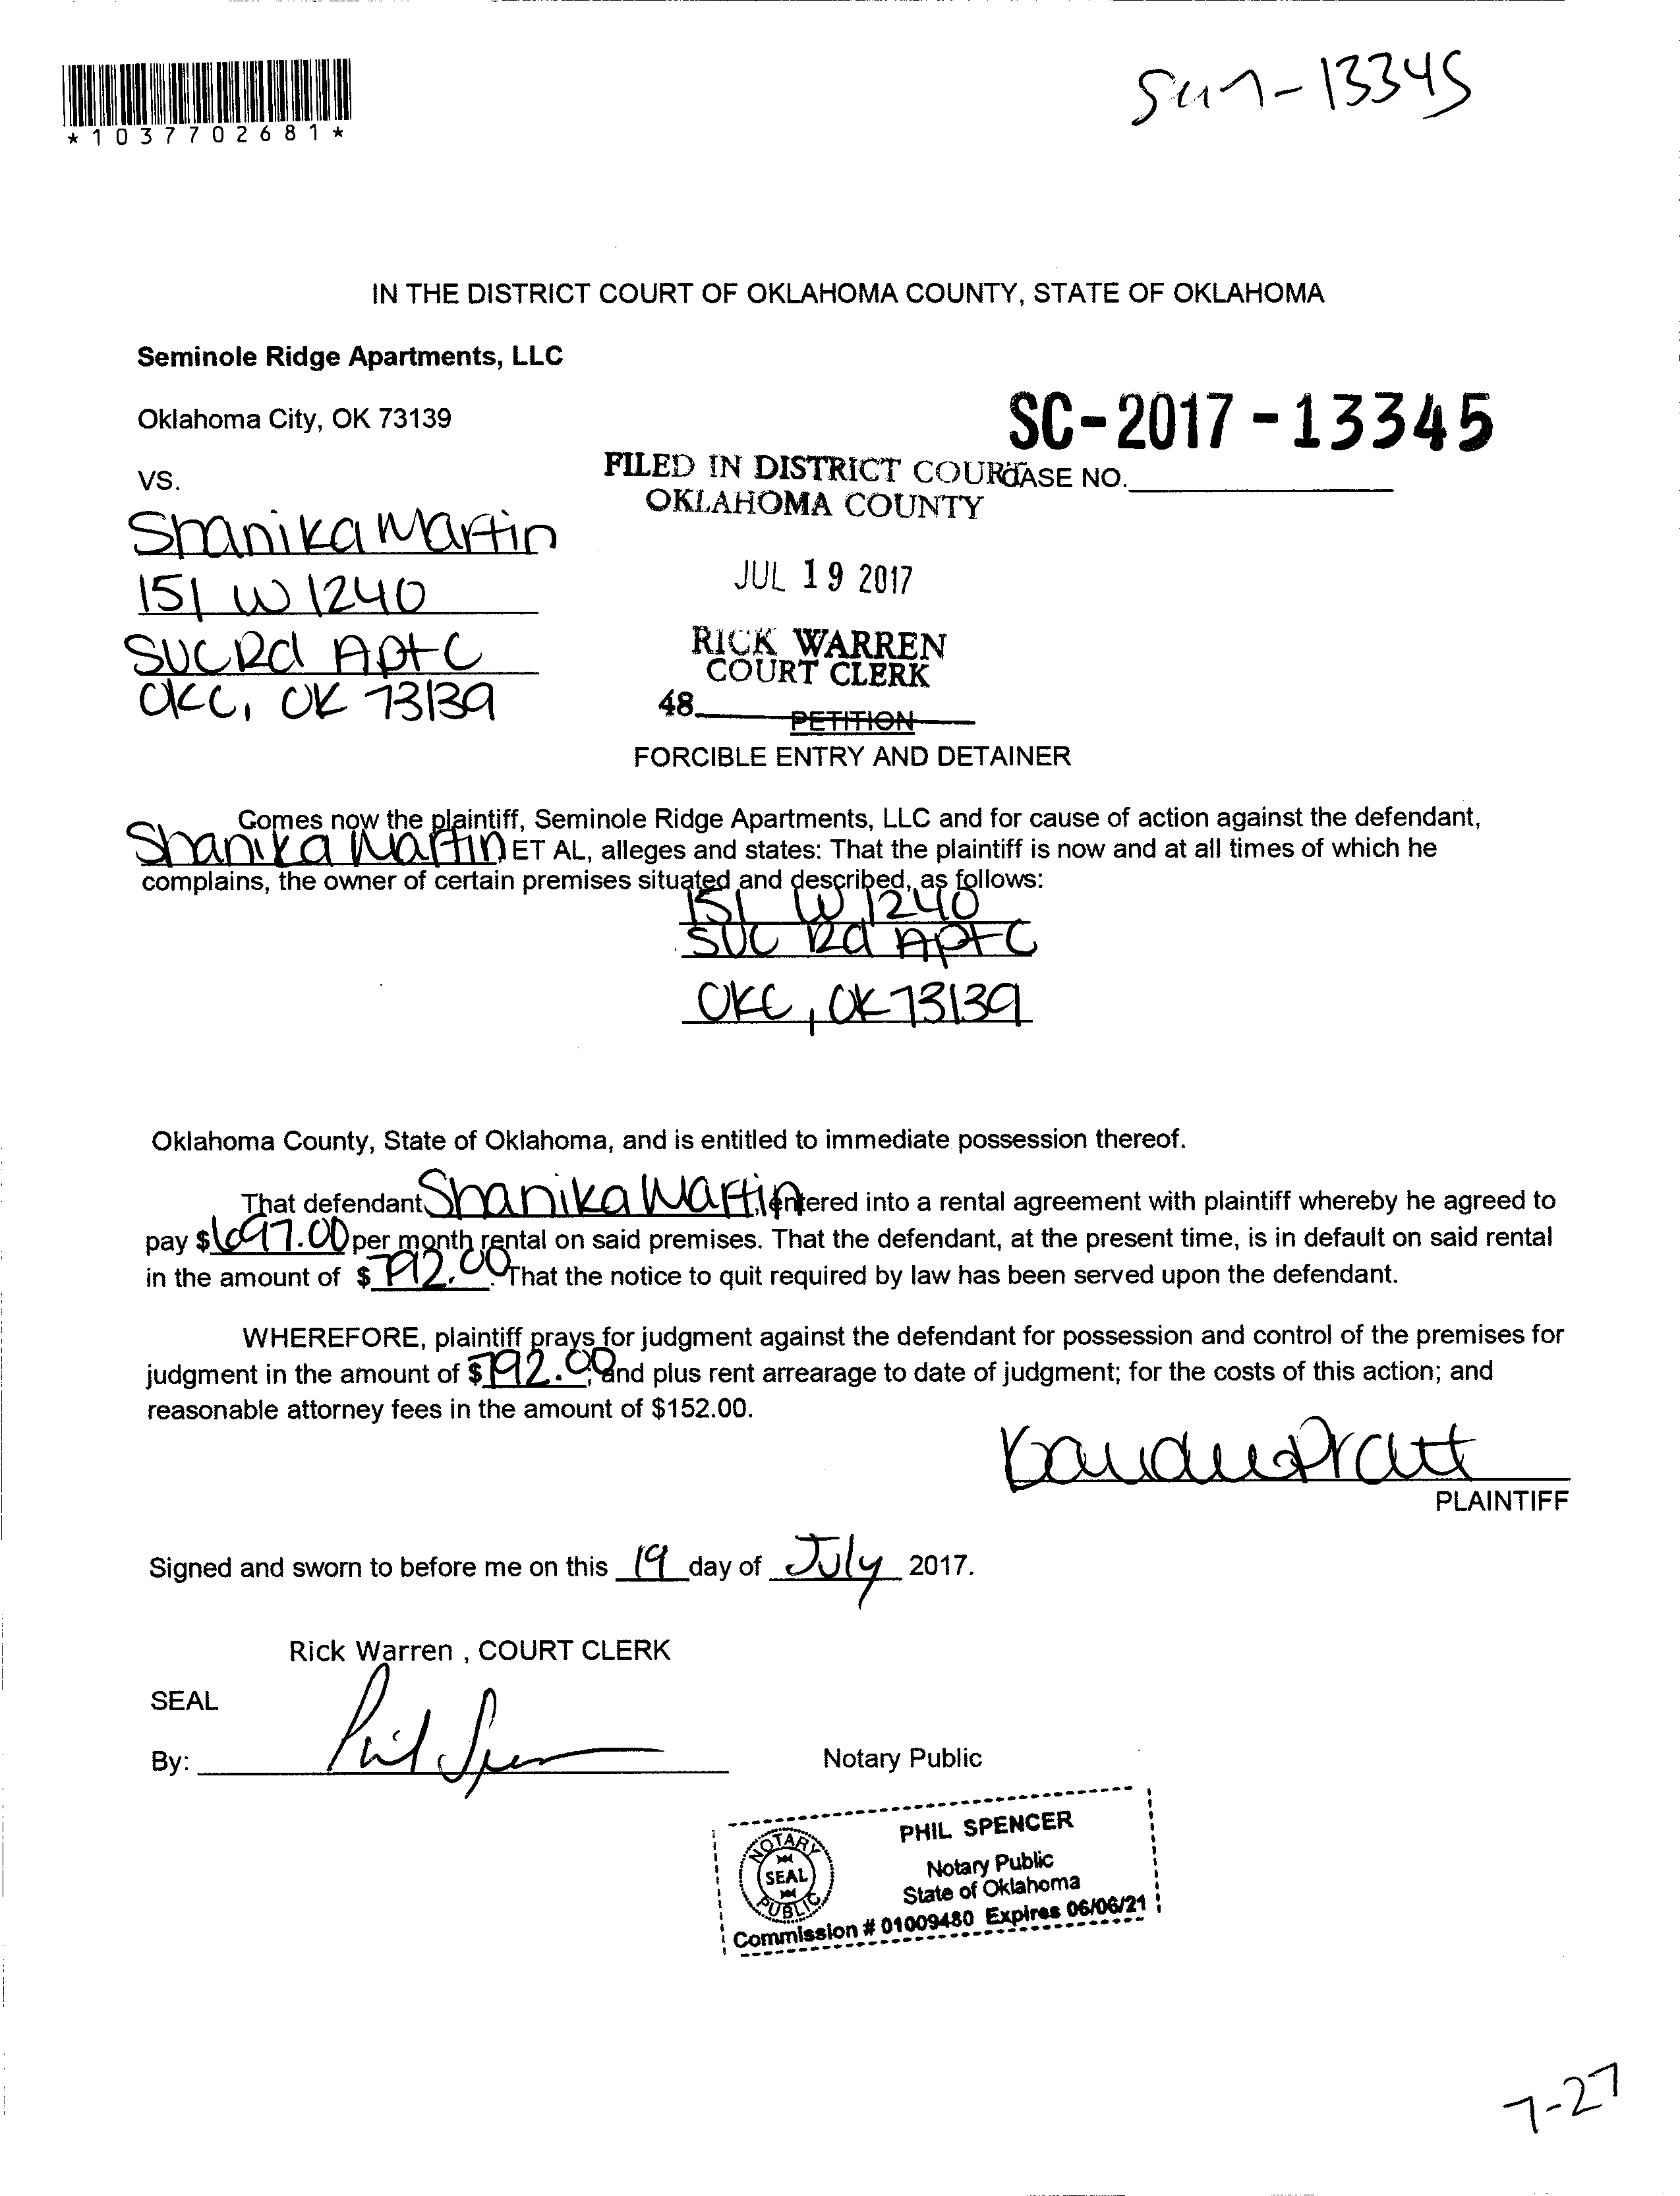 *1037702681*
Sc17-13345
IN THE DISTRICT COURT OF OKLAHOMA COUNTY, STATE OF OKLAHOMA
Seminole Ridge Apartments, LLC
Oklahoma City, OK 73139
SC-2017-13345
VS.
FILED IN DISTRICT COURT
CASE NO.
OKLAHOMA COUNTY
Shanika Martin
JUL 19 2017
151 W 1240
RICK WARREN
COURT CLERK
SVC Rd Apt C
OKC, OK 73139
48
PETITION
FORCIBLE ENTRY AND DETAINER
Comes now the plaintiff, Seminole Ridge Apartments, LLC and for cause of action against the defendant,
Shanika Martin ET AL, alleges and states: That the plaintiff is now and at all times of which he
complains, the owner of certain premises situated and described, as follows:
151 W 1240
SVC Rd Apt C
OKC, OK 73139
Oklahoma County, State of Oklahoma, and is entitled to immediate possession thereof.
That defendant, Shanika Martin, entered into a rental agreement with plaintiff whereby he agreed to
pay $697.00 per month rental on said premises. That the defendant, at the present time, is in default on said rental
in the amount of $792.00. That the notice to quit required by law has been served upon the defendant.
WHEREFORE, plaintiff prays for judgment against the defendant for possession and control of the premises for
judgment in the amount of $792.00; and plus rent arrearage to date of judgment; for the costs of this action; and
reasonable attorney fees in the amount of $152.00.
Pratt
PLAINTIFF
Signed and sworn to before me on this 19 day of July 2017.
Rick Warren , COURT CLERK
SEAL
By: Phil Spencer
Notary Public
PHIL SPENCER
NOTARY
SEAL
PUBLIC
Notary Public
State of Oklahoma
Commission # 01009480 Expires 06/06/21
7-27